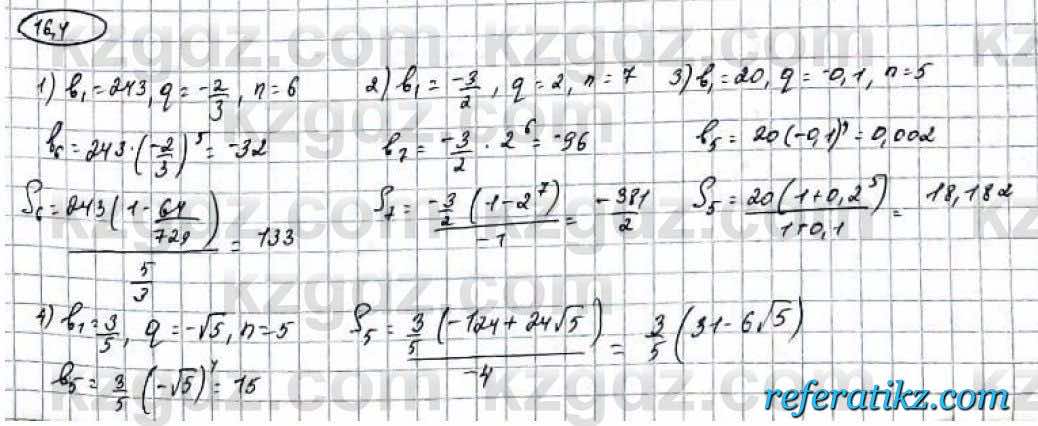 16,4
1) b₁ = 243, q = -2/3, n = 6
b₆ = 243 · (-2/3)⁵ = -32
S₆ = 243(1 - 64/729) / (5/3) = 133
2) b₁ = -3/2, q = 2, n = 7
b₇ = -3/2 · 2⁶ = -96
S₇ = -3/2 (1 - 2⁷) / -1 = -381/2
3) b₁ = 20, q = -0,1, n = 5
b₅ = 20(-0,1)⁴ = 0,002
S₅ = 20(1 + 0,2⁵) / 1 + 0,1 = 18,182
4) b₁ = 3/5, q = -√5, n = 5
b₅ = 3/5 (-√5)⁴ = 15
S₅ = 3/5 (-124 + 24√5) / -4 = 3/5 (31 - 6√5)
kzgdz.com
referatikz.com